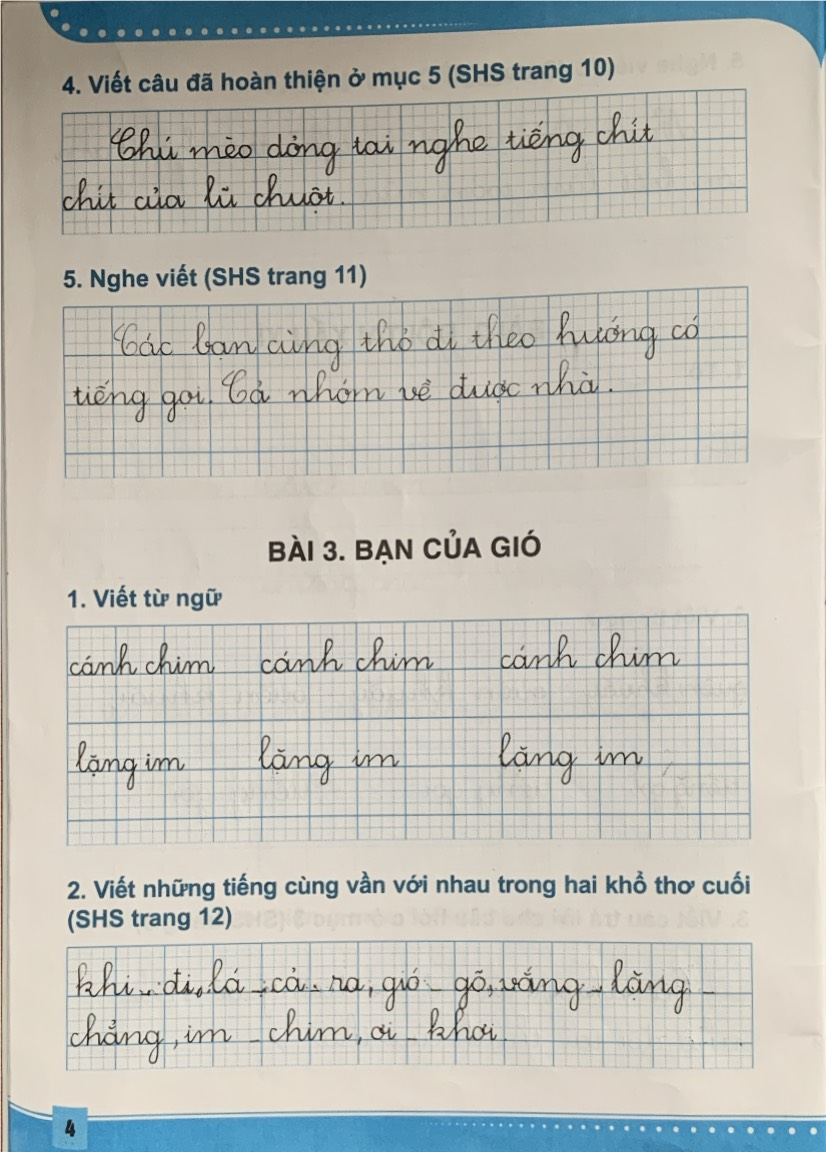 4. Viết câu đã hoàn thiện ở mục 5 (SHS trang 10)
Chú mèo dỏng tai nghe tiếng chít
chít của lũ chuột.
5. Nghe viết (SHS trang 11)
Các bạn cùng thỏ đi theo hướng có
tiếng gọi. Cả nhóm về được nhà.
BÀI 3. BẠN CỦA GIÓ
1. Viết từ ngữ
cánh chim cánh chim cánh chim
lặng im lặng im lặng im
2. Viết những tiếng cùng vần với nhau trong hai khổ thơ cuối
(SHS trang 12)
khi - đi, lá - cả - ra, gió - gõ, vắng - lặng -
chẳng, im - chim, ơi - khơi.
4